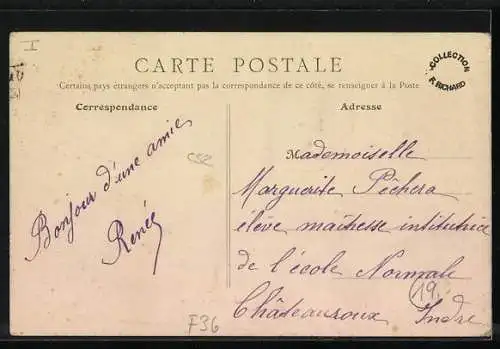 I
CARTE POSTALE
Certains pays étrangers n'acceptent pas la correspondance de ce côté, se renseigner à la Poste
COLLECTION
F. RICHARD
Correspondance
Adresse
Bonjour d'une amie
Renée
C52
Mademoiselle
Marguerite Pêchera
élève maîtresse institutrice
de l'école Normale
Châteauroux Indre
19.
F36